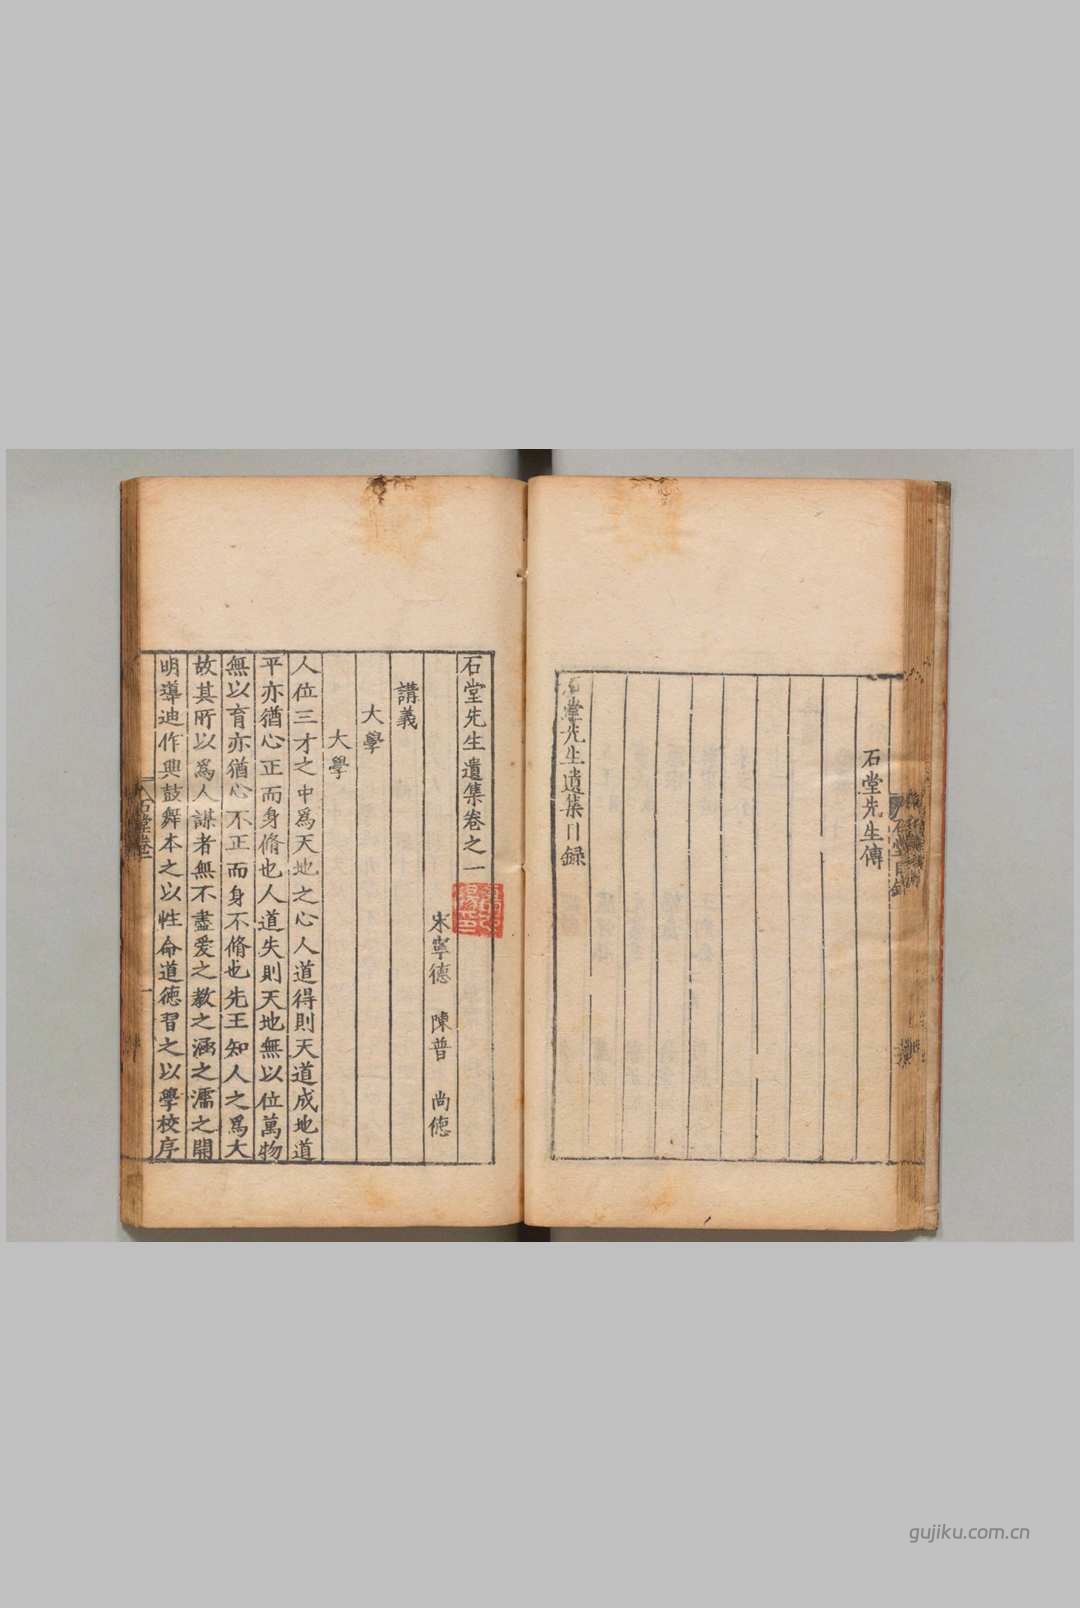 石堂先生傳
石堂先生遺集目録
石堂先生遺集卷之一
宋寧德 陳普 尚德
講義
大學
大學
人位三才之中爲天地之心人道得則天道成地道
平亦猶心正而身脩也人道失則天地無以位萬物
無以育亦猶心不正而身不脩也先王知人之爲大
故其所以爲人謀者無不盡爱之教之涵之濡之開
明導迪作興鼓舞本之以性命道德習之以學校序
石堂卷一
一
gujiku.com.cn